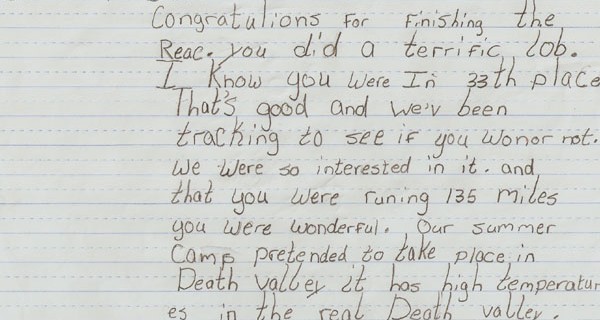 Congratulions for finishing the
Reac. you did a terrific Job.
I know you were In 33th place
That's good and we'v been
tracking to see if you wonor not.
We were so interested in it. and
that you were runing 135 miles
you were wonderful. Our summer
Camp pretended to take place in
Death valley it has high temperatur
es in the real Death valley.